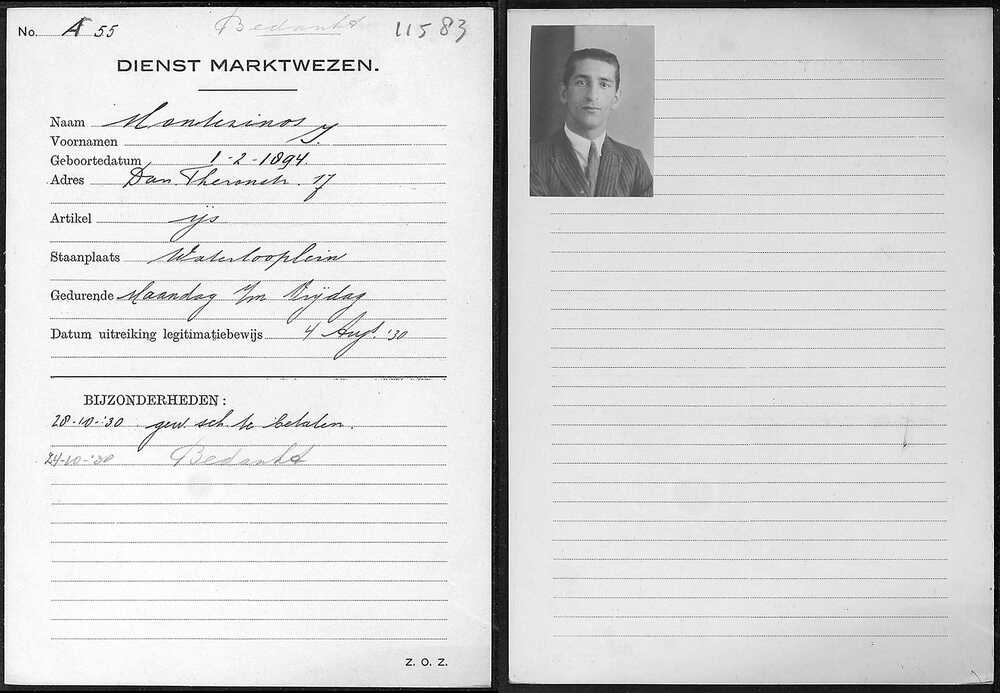 No. A 55 Bedankt 11583
DIENST MARKTWEZEN.
Naam Montezinos
Voornamen J.
Geboortedatum 1-2-1894.
Adres Dan. Theronstr. 17
Artikel ijs
Staanplaats Waterlooplein
Gedurende Maandag t/m Vrijdag
Datum uitreiking legitimatiebewijs 4 Aug. '30
BIJZONDERHEDEN:
20-10-'30 gew. sch. te betalen.
24-10-'30 Bedankt
Z. O. Z.